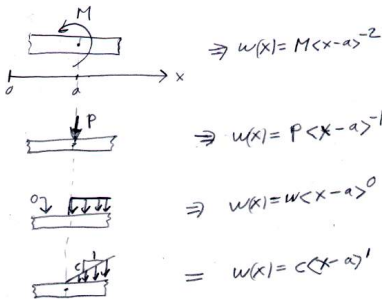 M
⇒ w(x) = M<x-a>⁻²
0 a x
P
⇒ w(x) = P<x-a>⁻¹
0
⇒ w(x) = w<x-a>⁰
c 1
= w(x) = c<x-a>¹